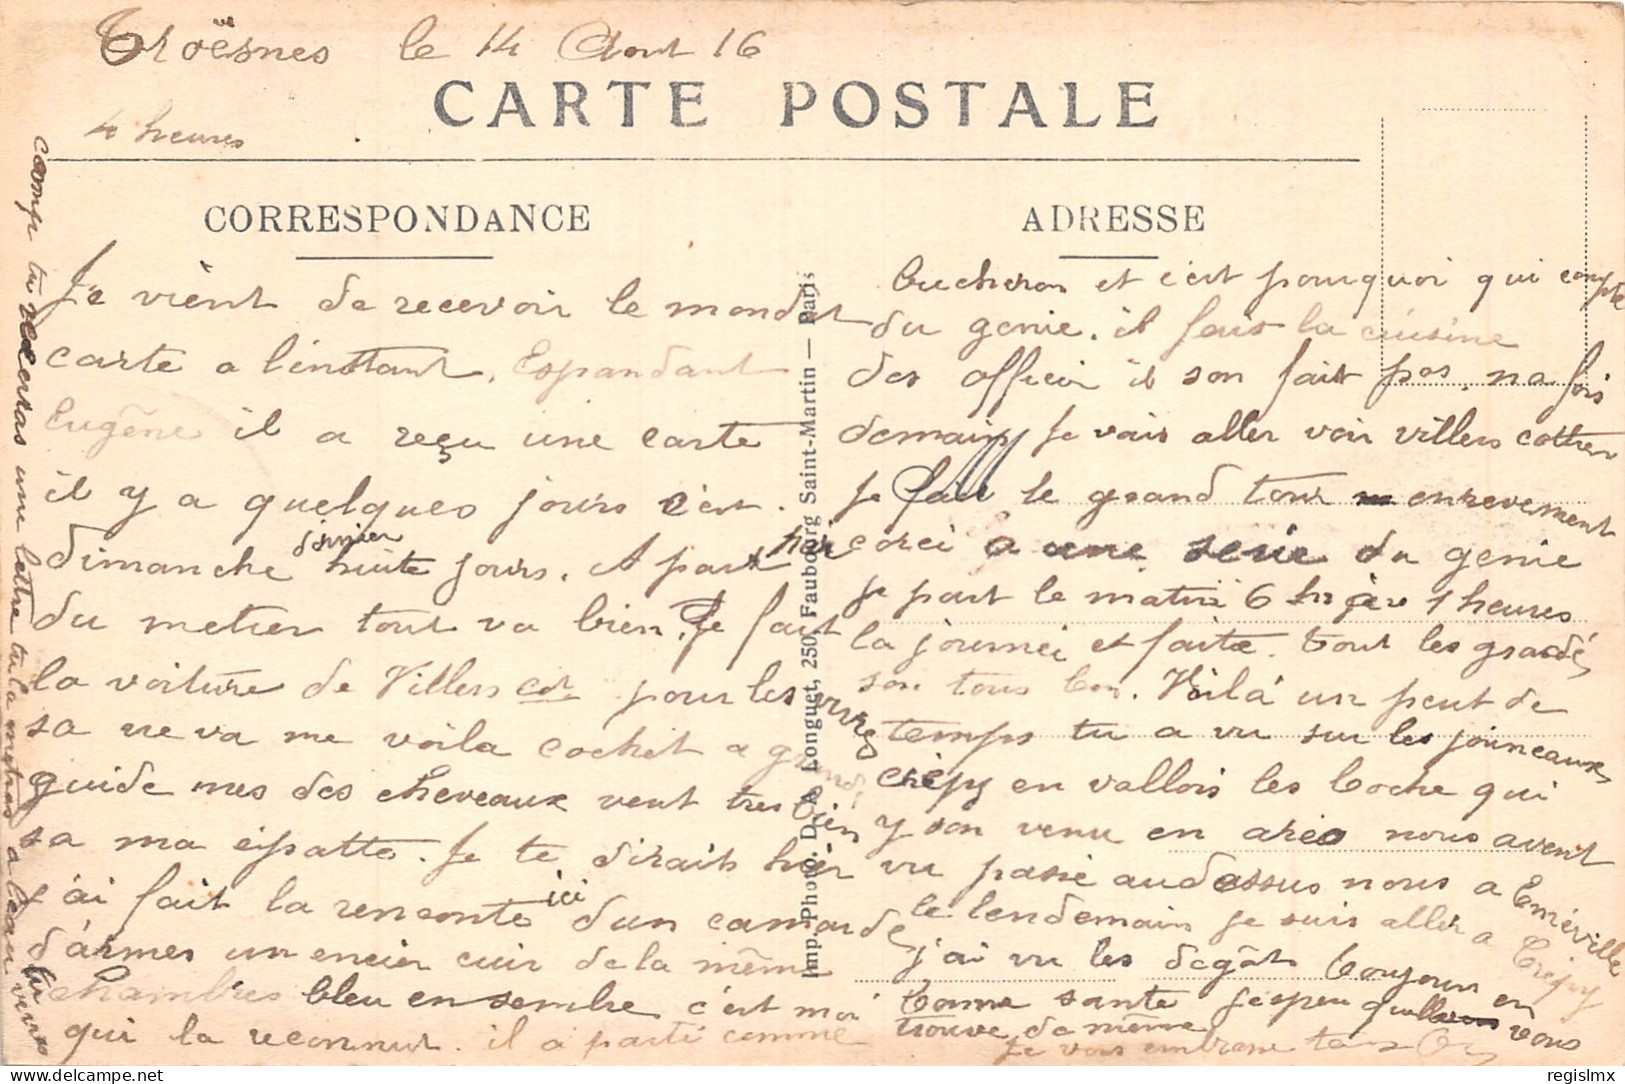 Troësnes le 14 Aout 16
4 heures
CARTE POSTALE
CORRESPONDANCE
ADRESSE
Je vient de recevoir le mondat
carte a l'instant. Espandant
Eugêne il a reçu une carte
il y a quelques jours c'est
dimanche dernier huite jours. A part
du metier tout va bien. Je fait
la voiture de Villers cot pour les vivres
sa ne va me voila cochet a
guide mes des cheveaux vent tres bien
sa ma eipatte. Je te dirait hier
j'ai fait la renconte ici d'un camarde
d'armes un encien cuir de la même
chambres bleu ensemble c'est moi
qui la reconnut. il a parti comme
bucheron et c'est pourquoi qui compte
du genie. il fais la cuisine
des officir il son fait pas. na fois
demain je vais aller voir villers cotter
Je fait le grand tour enrevement
coreï a une serie du genie
je part le matin 6 hrs 1 heures
la journei et faite. tout les gradés
son tous bon. Voilà un peut de
temps tu a vu sur les journeaux
crépy en vallois les boche qui
y son venu en aréo nous avont
vu passé audessus nous a Eméville
le lendemain je suis aller a Crépy
j'ai vu les degât toujour en
bonne sante j'espeu quelle vous
trouve de même
Je vous embrasse
comp tu receveras une lettre tu la mettras a leau tu verras
Imp. Photo. D. A. Longuet, 250, Faubourg Saint-Martin — Paris
regislmx